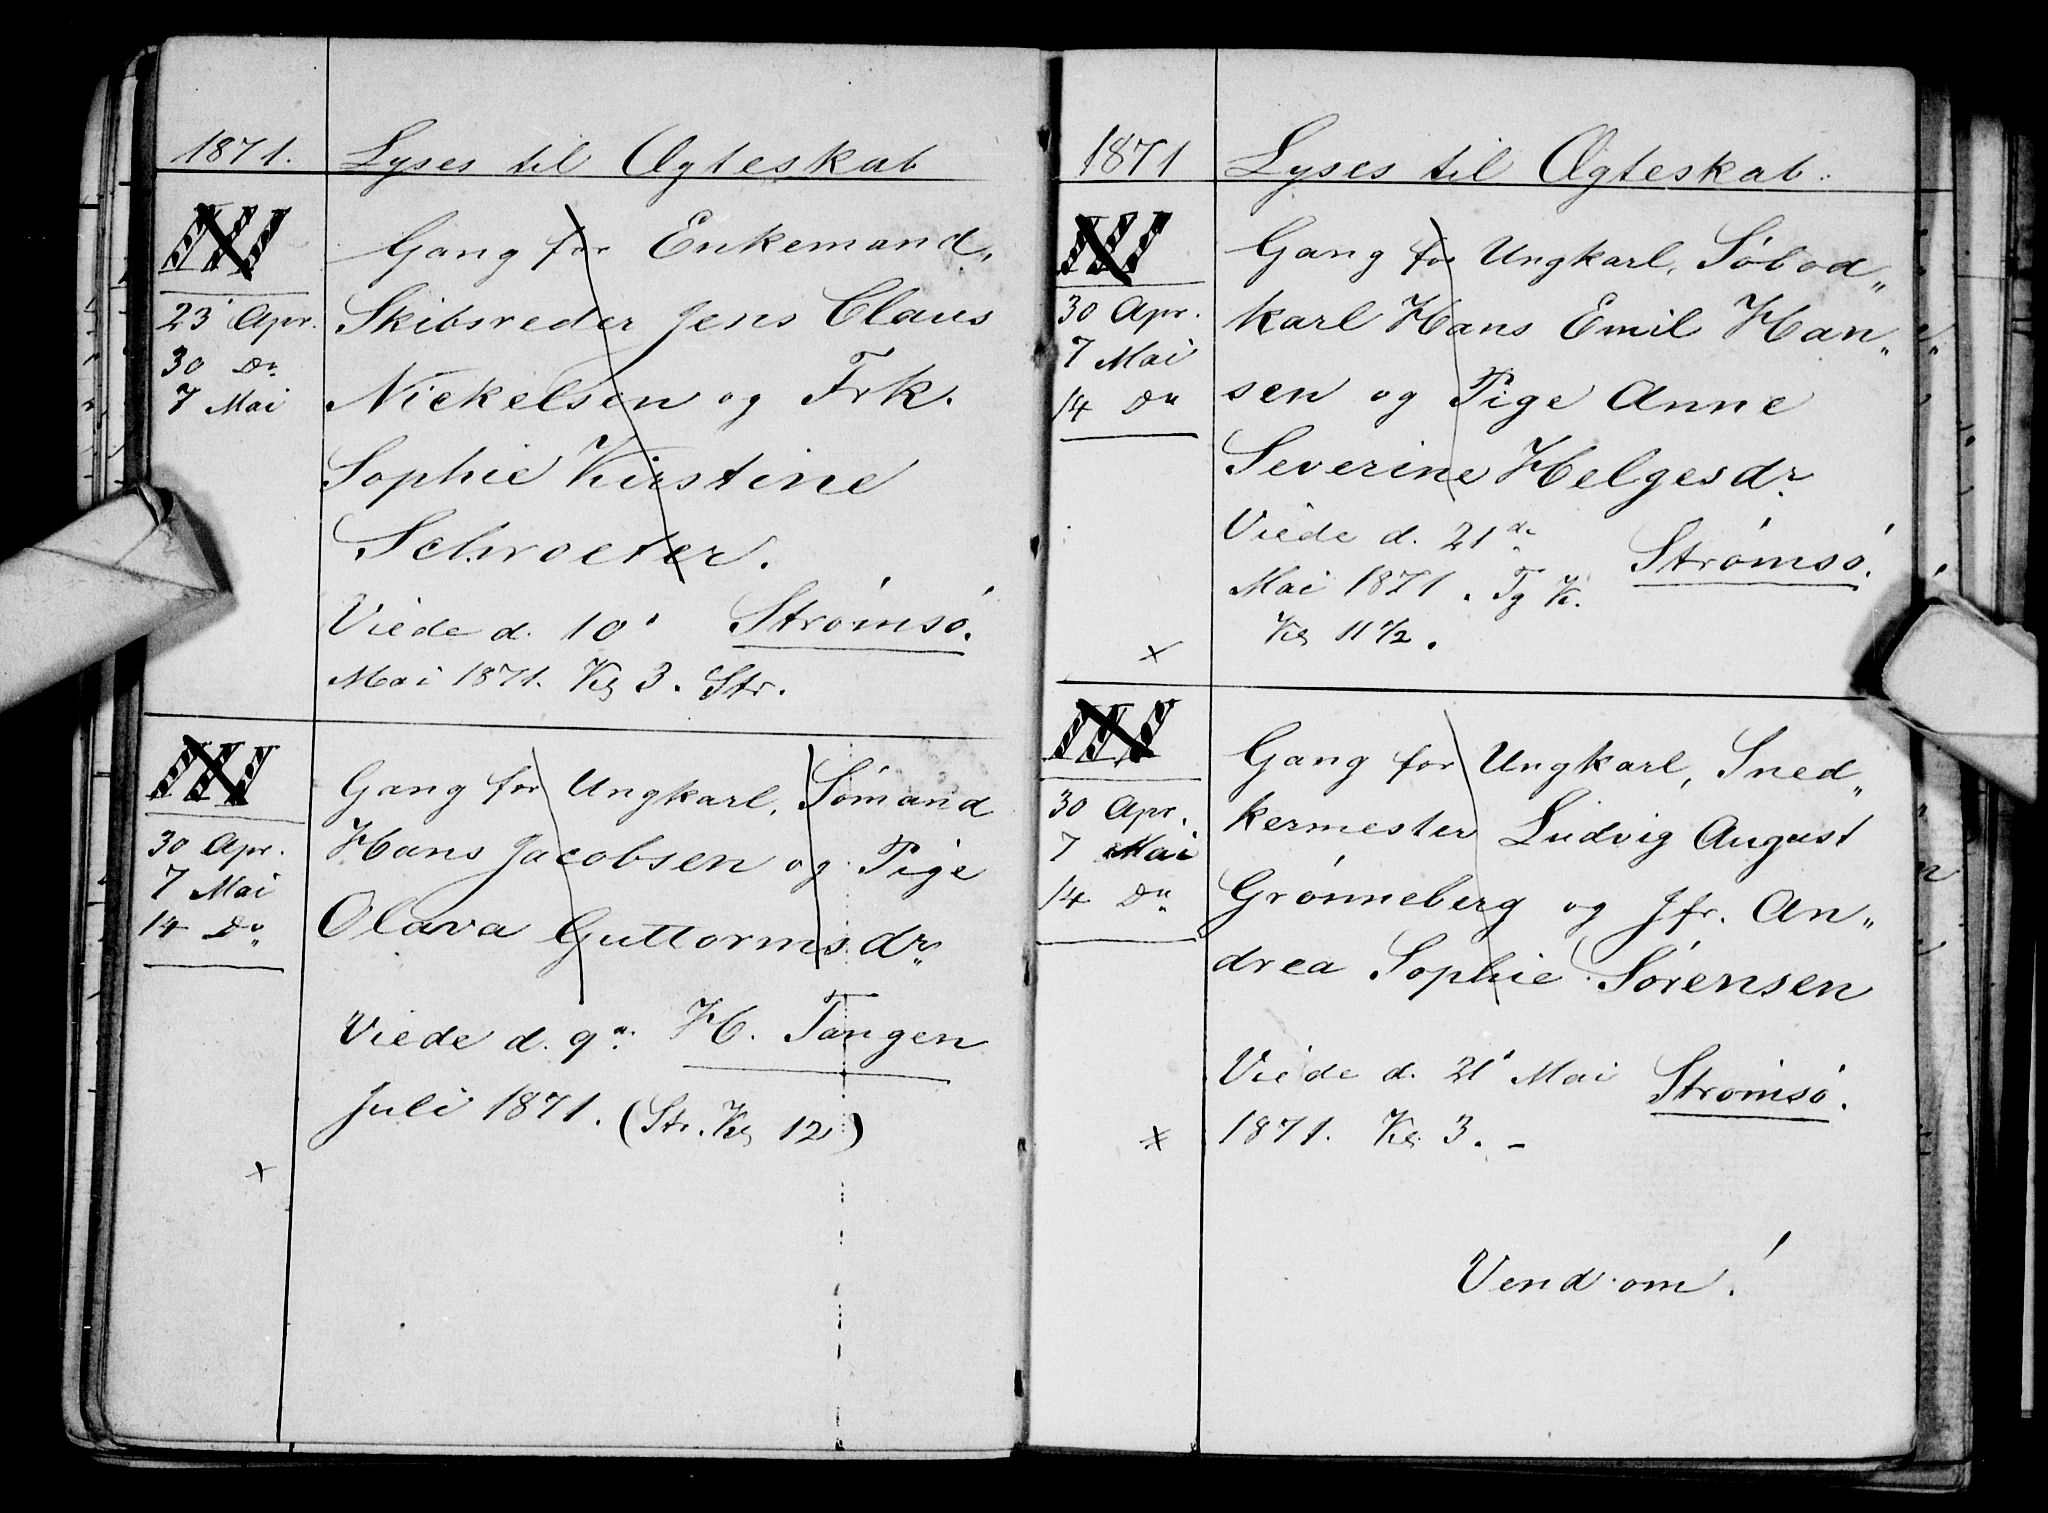 1871.
Lyses til Ægteskab
III
Gang for Enkemand,
23 Apr.
Skibsreder Jens Claus
30 Do
7 Mai
Nickelsen og Frk.
Sophie Kirstine
Schroeter.
Viede d. 10'
Strømsø.
Mai 1871. Kl 3. Str.
III
Gang for Ungkarl, Sømand
30 Apr.
Hans Jacobsen og Pige
7 Mai
14 Do
Olava Guttormsdr
Viede d. 9de
H. Tangen
Juli 1871. (Str. Kl 12)
x
1871
Lyses til Ægteskab.
III
Gang for Ungkarl, Søbod„
30 Apr.
karl Hans Emil Han„
7 Mai
14 Do
sen og Pige Anne
Severine Helgesdr
Viede d. 21de
Strømsø.
Mai 1871. Tg K.
Kl 11 1/2.
x
III
Gang for Ungkarl, Sned„
30 Apr.
kermester Ludvig August
7 Mai
14 Do
Grønneberg og Jfr. An„
drea Sophie Sørensen
Viede d. 21' Mai
Strømsø.
x
1871. Kl. 3. –
Vend om!